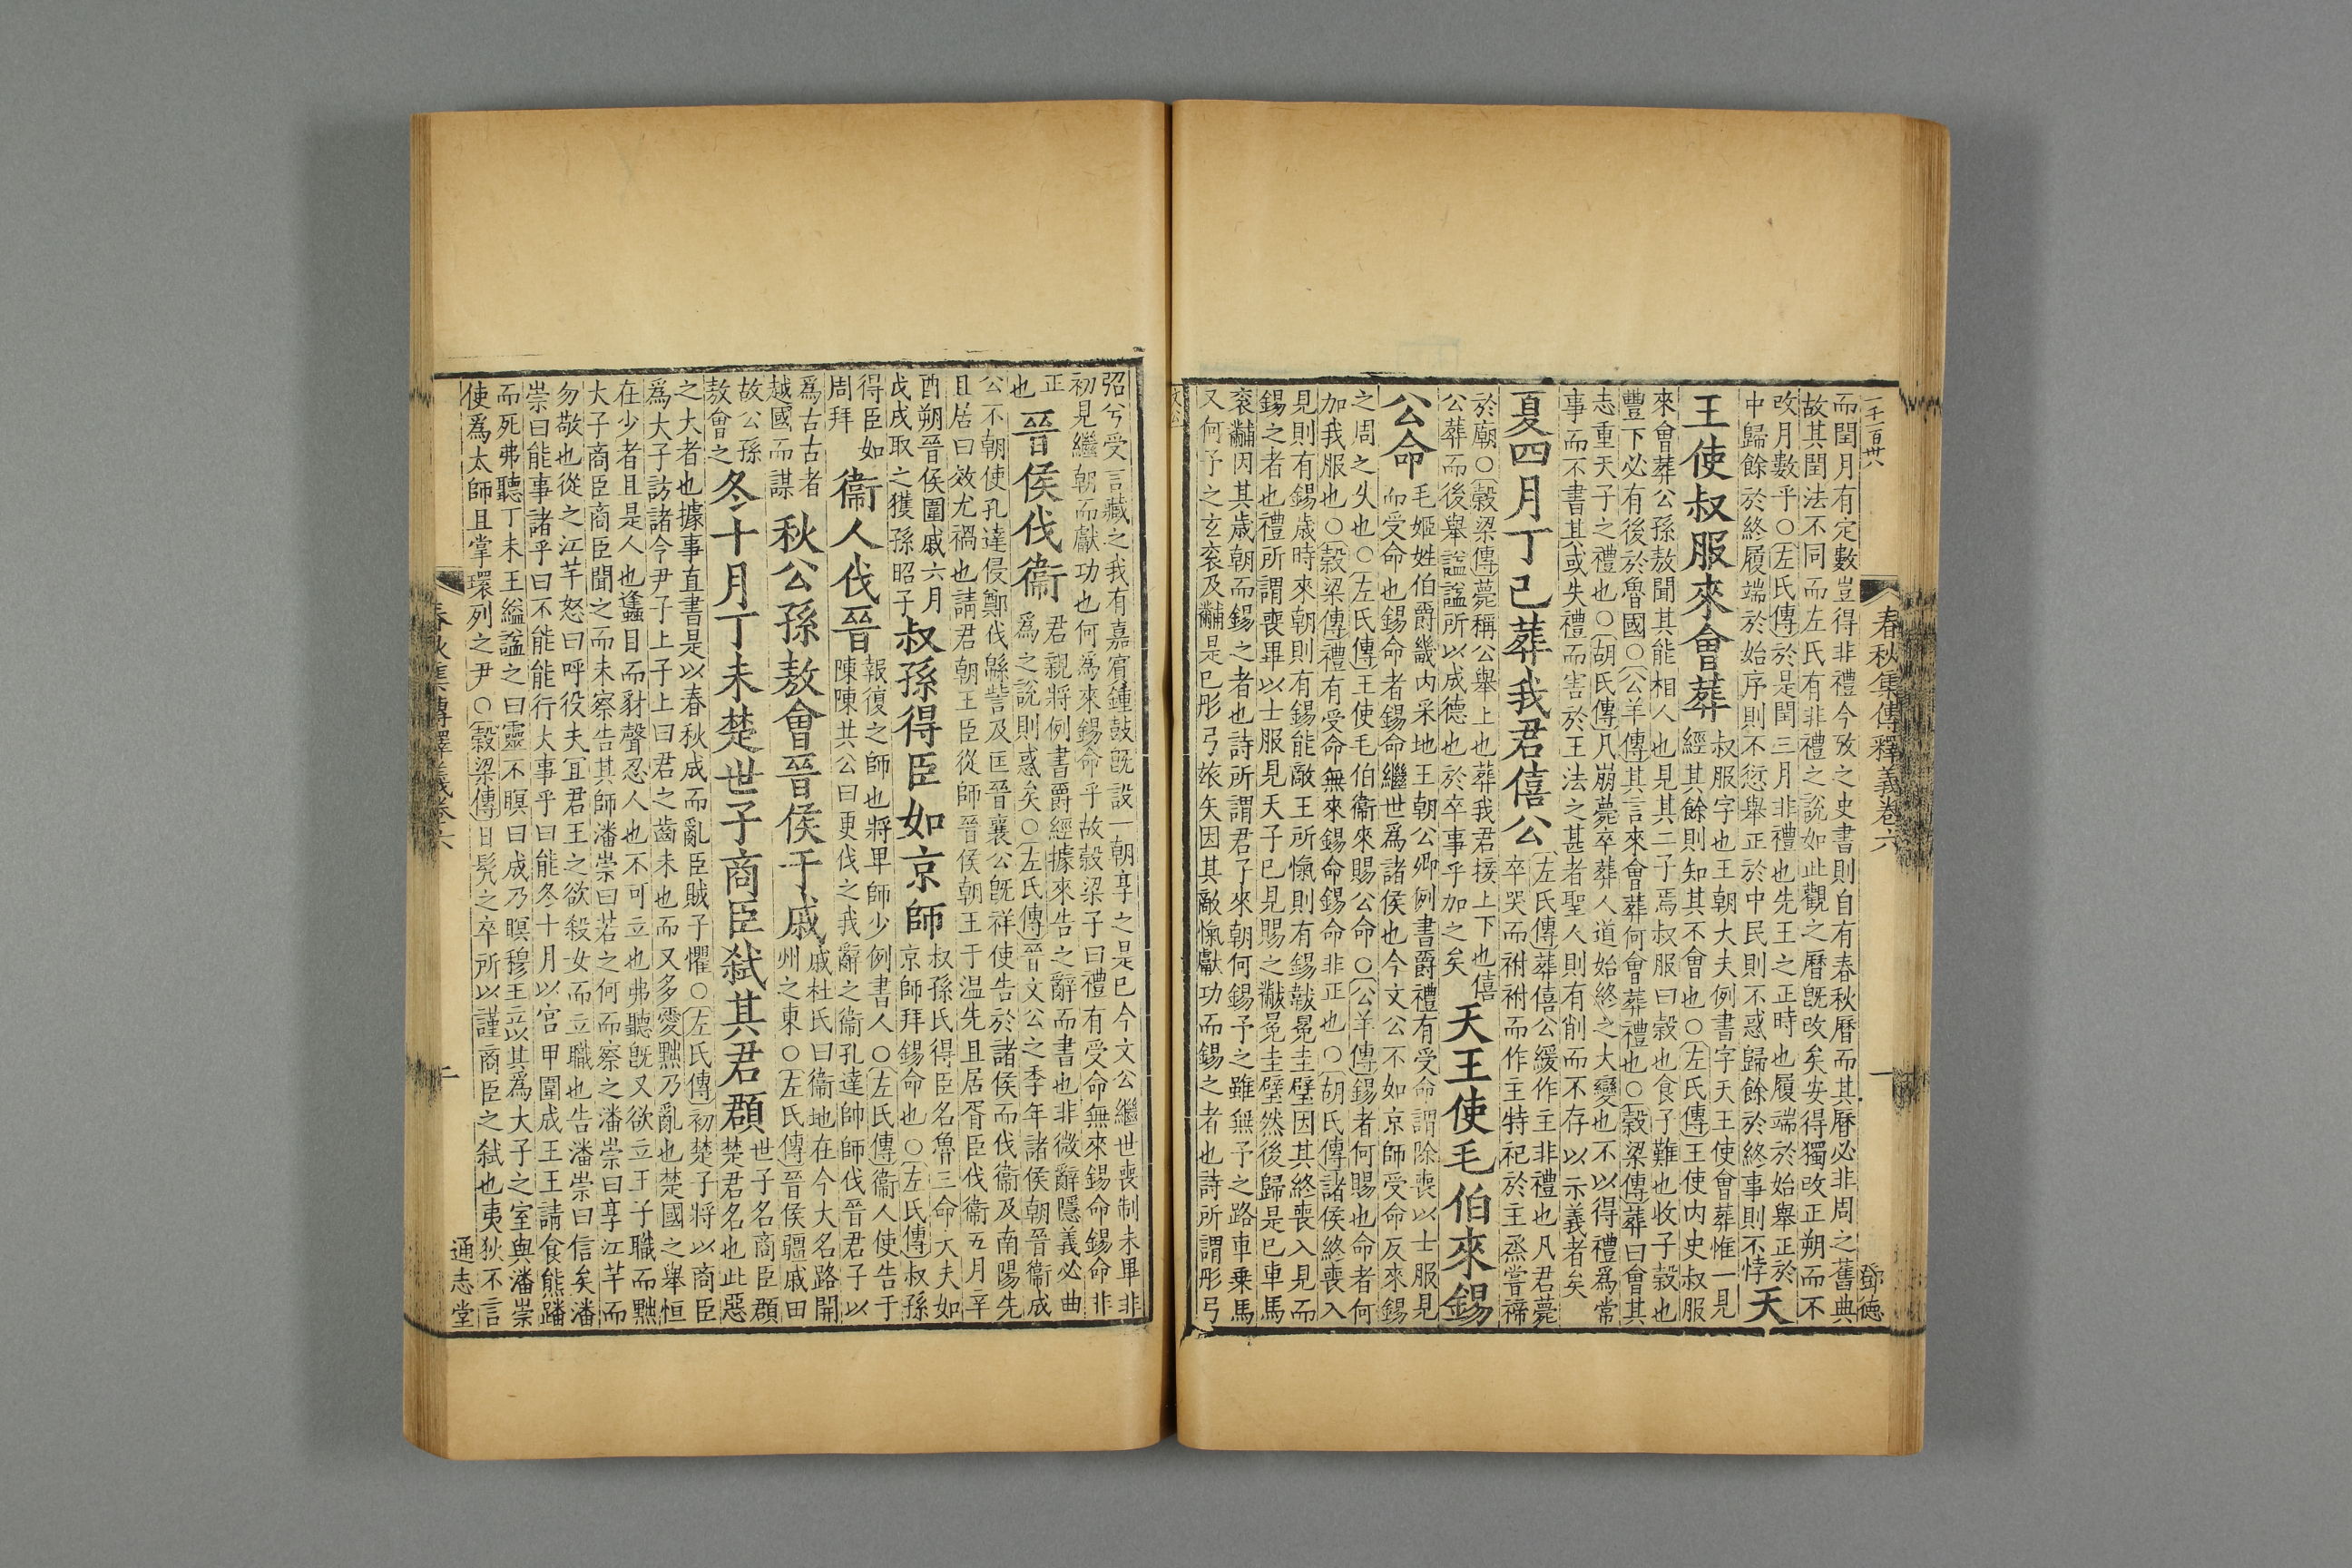 一千一百卅六
春秋集傳釋義卷六
一
鄧德
而閏月有定數豈得非禮今攷之史書則自有春秋曆而其曆必非周之舊典
故其閏法不同而左氏有非禮之說如此觀之曆旣改矣安得獨改正朔而不
改月數乎○左氏傳於是閏三月非禮也先王之正時也履端於始舉正於
中歸餘於終履端於始序則不愆舉正於中民則不惑歸餘於終事則不悖
天
王使叔服來會葬
叔服字也王朝大夫例書字天王使會葬惟一見
經其餘則知其不會也○左氏傳王使內史叔服
來會葬公孫敖聞其能相人也見其二子焉叔服曰穀也食子難也收子穀也
豐下必有後於魯國○公羊傳其言來會葬何會葬禮也○穀梁傳葬曰會其
志重天子之禮也○胡氏傳凡崩薨卒葬人道始終之大變也不以得禮爲常
事而不書其或失禮而害於王法之甚者聖人則有削而不存以示義者矣
夏四月丁巳葬我君僖公
左氏傳葬僖公緩作主非禮也凡君薨
卒哭而祔祔而作主特祀於主烝嘗禘
於廟○穀梁傳薨稱公舉上也葬我君接上下也僖
公葬而後舉諡諡所以成德也於卒事乎加之矣
天王使毛伯來錫
公命
毛姬姓伯爵畿內采地王朝公卿例書爵禮有受命謂除喪以士服見
而受命也錫命者錫命繼世爲諸侯也今文公不如京師受命反來錫
之周之失也○左氏傳王使毛伯衞來賜公命○公羊傳錫者何賜也命者何
加我服也○穀梁傳禮有受命無來錫命錫命非正也○胡氏傳諸侯終喪入
見則有錫歲時來朝則有錫能敵王所愾則有錫韍冕圭璧因其終喪入見而
錫之者也禮所謂喪畢以士服見天子已見賜之黻冕圭璧然後歸是已車馬
袞黼因其歲朝而錫之者也詩所謂君子來朝何錫予之雖無予之路車乗馬
又何予之玄袞及黼是已彤弓旅矢因其敵愾獻功而錫之者也詩所謂彤弓
弨兮受言藏之我有嘉賓鍾鼓旣設一朝享之是已今文公繼世喪制未畢非
初見繼朝而獻功也何爲來錫命乎故穀梁子曰禮有受命無來錫命錫命非
正
也
晉侯伐衞
君親將例書爵經據來告之辭而書也非微辭隱義必曲
爲之說則惑矣○左氏傳晉文公之季年諸侯朝晉衞成
公不朝使孔達侵鄭伐緜訾及匡晉襄公旣祥使告於諸侯而伐衞及南陽先
且居曰效尤禍也請君朝王臣從師晉侯朝王于温先且居胥臣伐衞五月辛
酉朔晉侯圍戚六月
戊戌取之獲孫昭子
叔孫得臣如京師
叔孫氏得臣名魯三命大夫如
京師拜錫命也○左氏傳叔孫
得臣如
周拜
衞人伐晉
報復之師也將卑師少例書人○左氏傳衞人使告于
陳陳共公曰更伐之我辭之衞孔達帥師伐晉君子以
爲古古者
越國而謀
秋公孫敖會晉侯于戚
戚杜氏曰衞地在今大名路開
州之東○左氏傳晉侯疆戚田
故公孫
敖會之
冬十月丁未楚世子商臣弑其君頵
世子名商臣頵
楚君名也此惡
之大者也據事直書是以春秋成而亂臣賊子懼○左氏傳初楚子將以商臣
爲大子訪諸令尹子上子上曰君之齒未也而又多愛黜乃亂也楚國之舉恒
在少者且是人也蠭目而豺聲忍人也不可立也弗聽旣又欲立王子職而黜
大子商臣商臣聞之而未察告其師潘崇曰若之何而察之潘崇曰享江芊而
勿敬也從之江芊怒曰呼役夫冝君王之欲殺女而立職也告潘崇曰信矣潘
崇曰能事諸乎曰不能能行大事乎曰能冬十月以宮甲圍成王王請食熊蹯
而死弗聽丁未王縊諡之曰靈不瞑曰成乃瞑穆王立以其爲大子之室與潘崇
使爲太師且掌環列之尹○穀梁傳日髠之卒所以謹商臣之弑也夷狄不言
春秋集傳釋義卷六
通志堂